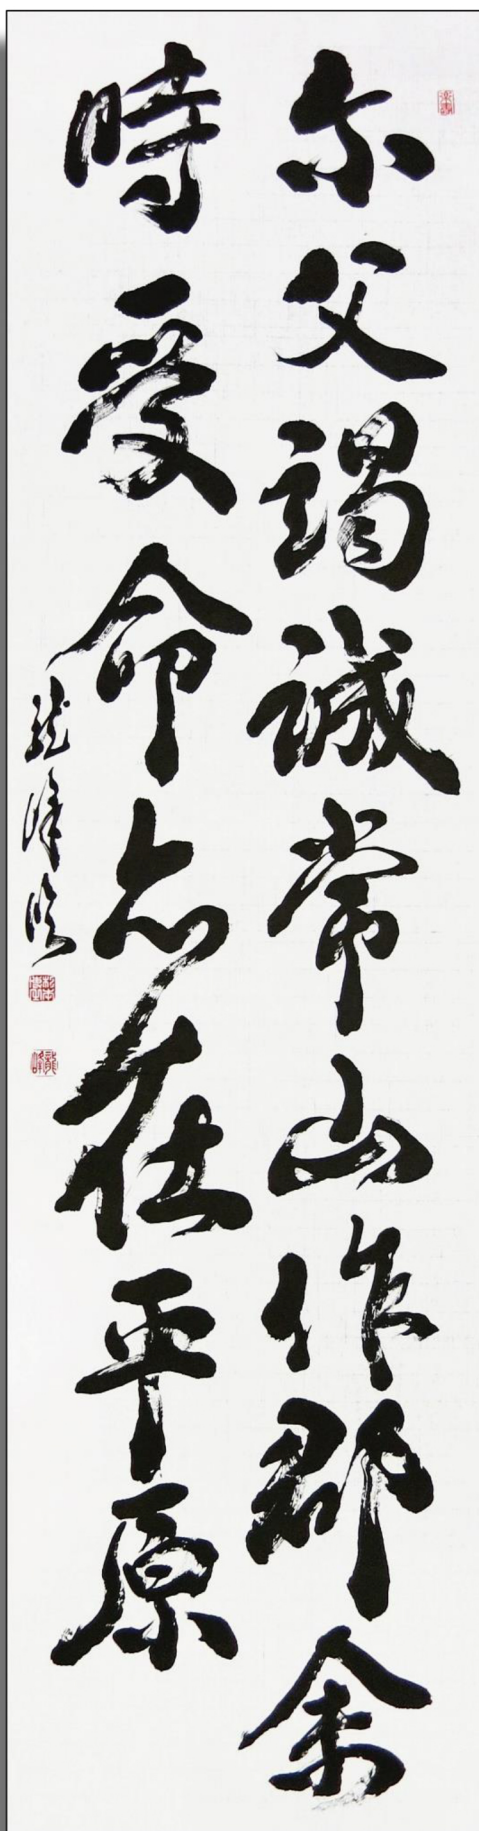 尔父竭誠常山作郡余
時受命亦在平原
龍峰臨